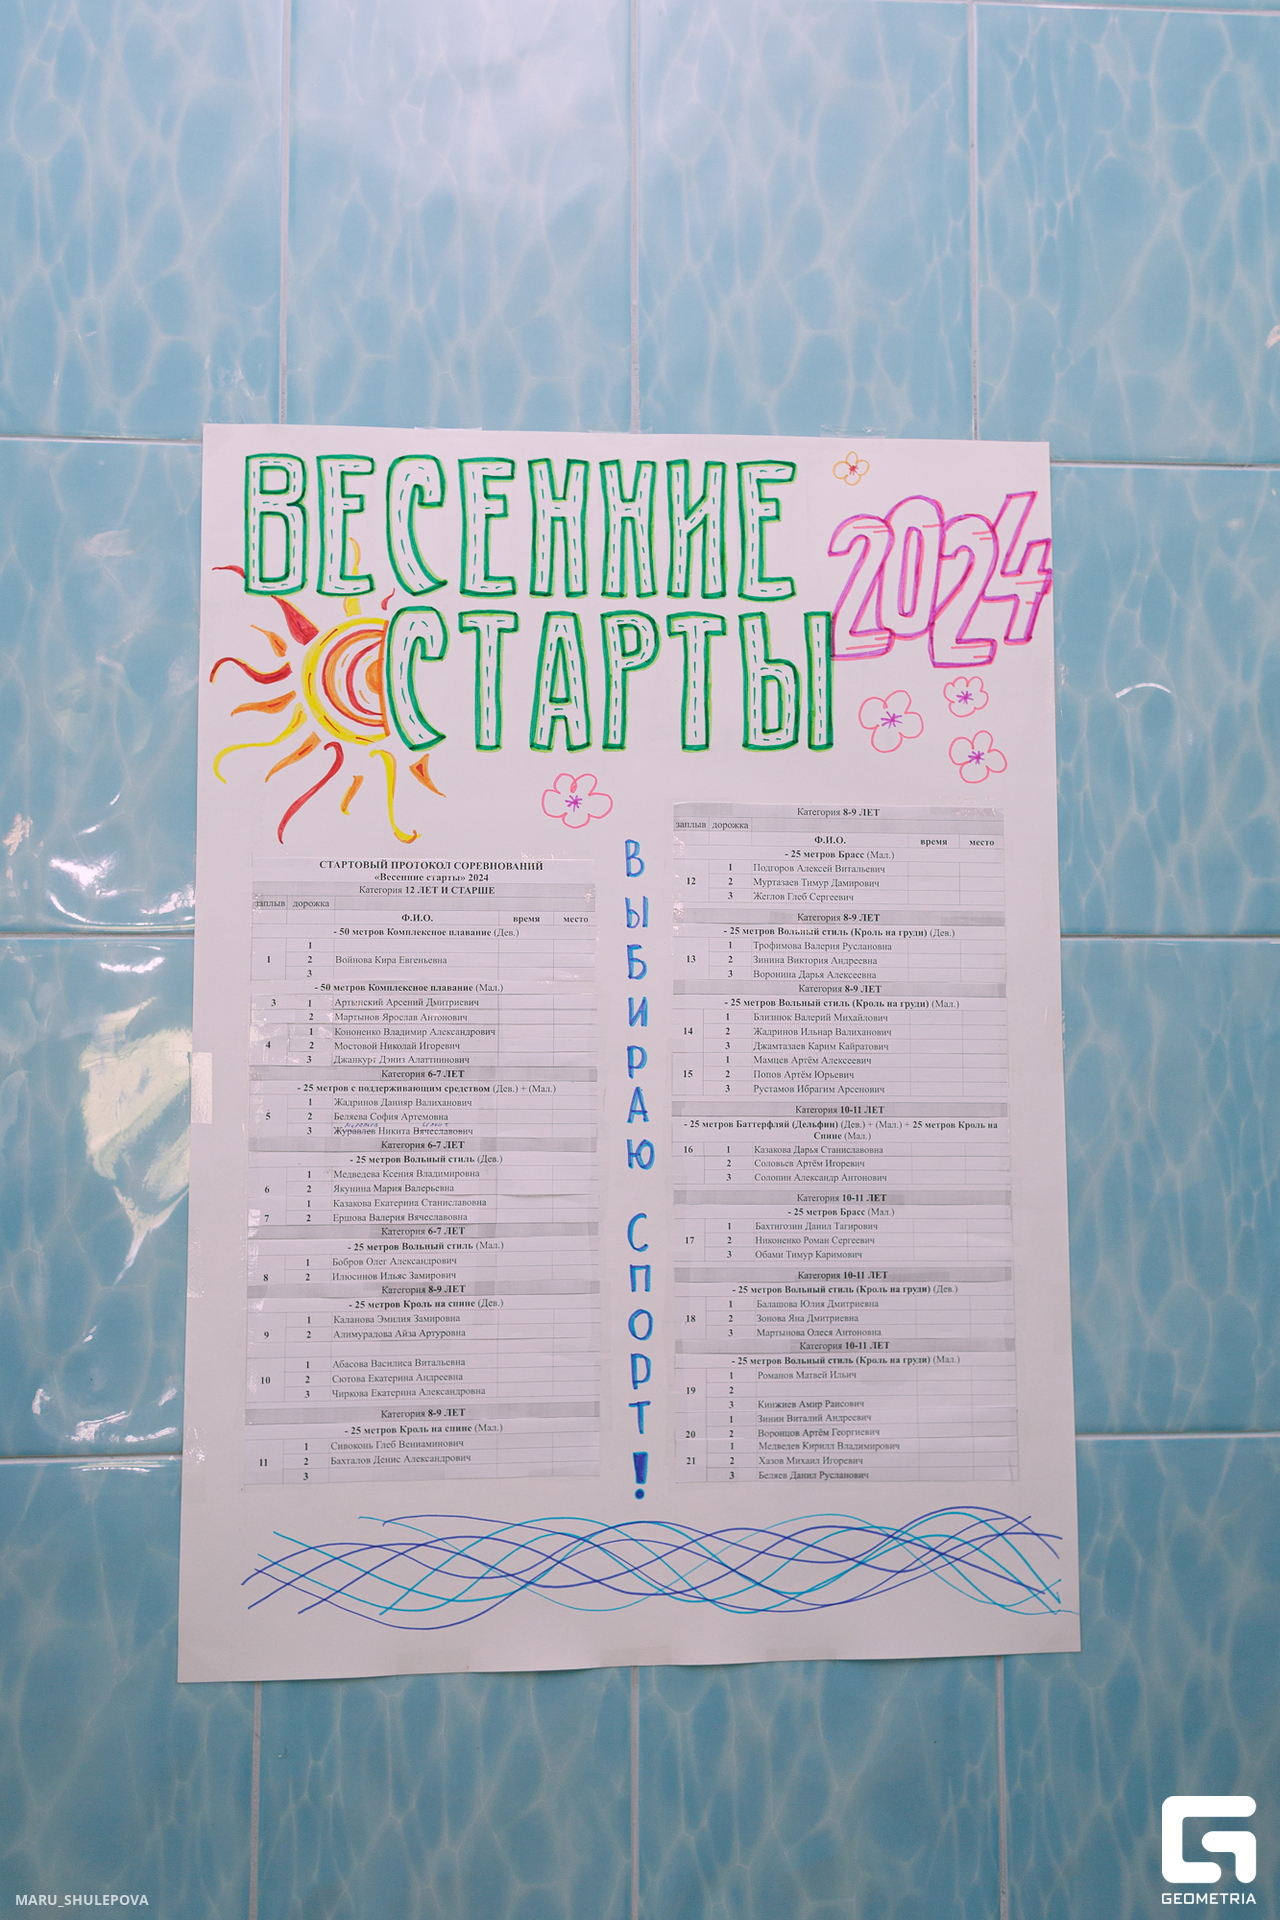 ВЕСЕННИЕ
СТАРТЫ
2024
СТАРТОВЫЙ ПРОТОКОЛ СОРЕВНОВАНИЙ
«Весенние старты» 2024
Категория 12 ЛЕТ И СТАРШЕ
заплыв дорожка
Ф.И.О. время место
- 50 метров Комплексное плавание (Дев.)
1
1 2 Войнова Кира Евгеньевна
3
- 50 метров Комплексное плавание (Мал.)
3 1 Артынский Арсений Дмитриевич
2 Мартынов Ярослав Антонович
1 Кононенко Владимир Александрович
4 2 Мостовой Николай Игоревич
3 Джанкурт Дэниз Алаттинович
Категория 6-7 ЛЕТ
- 25 метров с поддерживающим средством (Дев.) + (Мал.)
1 Жадринов Данияр Валиханович
5 2 Беляева София Артемовна
3 Журавлев Никита Вячеславович
Категория 6-7 ЛЕТ
- 25 метров Вольный стиль (Дев.)
1 Медведева Ксения Владимировна
6 2 Якунина Мария Валерьевна
1 Казакова Екатерина Станиславовна
7 2 Ершова Валерия Вячеславовна
Категория 6-7 ЛЕТ
- 25 метров Вольный стиль (Мал.)
1 Бобров Олег Александрович
8 2 Илюсинов Ильяс Замирович
Категория 8-9 ЛЕТ
- 25 метров Кроль на спине (Дев.)
1 Каланова Эмилия Замировна
9 2 Алимурадова Айза Артуровна
1 Абасова Василиса Витальевна
10 2 Сютова Екатерина Андреевна
3 Чиркова Екатерина Александровна
Категория 8-9 ЛЕТ
- 25 метров Кроль на спине (Мал.)
1 Сивоконь Глеб Вениаминович
11 2 Бахталов Денис Александрович
3
ВЫБИРАЮ СПОРТ!
Категория 8-9 ЛЕТ
заплыв дорожка
Ф.И.О. время место
- 25 метров Брасс (Мал.)
1 Подгоров Алексей Витальевич
12 2 Муртазаев Тимур Дамирович
3 Жеглов Глеб Сергеевич
Категория 8-9 ЛЕТ
- 25 метров Вольный стиль (Кроль на груди) (Дев.)
1 Трофимова Валерия Руслановна
13 2 Зинина Виктория Андреевна
3 Воронина Дарья Алексеевна
Категория 8-9 ЛЕТ
- 25 метров Вольный стиль (Кроль на груди) (Мал.)
1 Близнюк Валерий Михайлович
14 2 Жадринов Ильнар Валиханович
3 Джамтазаев Карим Кайратович
1 Мамцев Артём Алексеевич
15 2 Попов Артём Юрьевич
3 Рустамов Ибрагим Арсенович
Категория 10-11 ЛЕТ
- 25 метров Баттерфляй (Дельфин) (Дев.) + (Мал.) + 25 метров Кроль на
Спине (Мал.)
16 1 Казакова Дарья Станиславовна
2 Соловьев Артём Игоревич
3 Солопин Александр Антонович
Категория 10-11 ЛЕТ
- 25 метров Брасс (Мал.)
1 Бахтигозин Данил Тагирович
17 2 Никоненко Роман Сергеевич
3 Обами Тимур Каримович
Категория 10-11 ЛЕТ
- 25 метров Вольный стиль (Кроль на груди) (Дев.)
1 Балашова Юлия Дмитриевна
18 2 Зонова Яна Дмитриевна
3 Мартынова Олеся Антоновна
Категория 10-11 ЛЕТ
- 25 метров Вольный стиль (Кроль на груди) (Мал.)
1 Романов Матвей Ильич
19 2
3 Кинжиев Амир Раисович
1 Зинин Виталий Андреевич
20 2 Воронцов Артём Георгиевич
1 Медведев Кирилл Владимирович
21 2 Хазов Михаил Игоревич
3 Беляев Данил Русланович
MARU_SHULEPOVA
GEOMETRIA